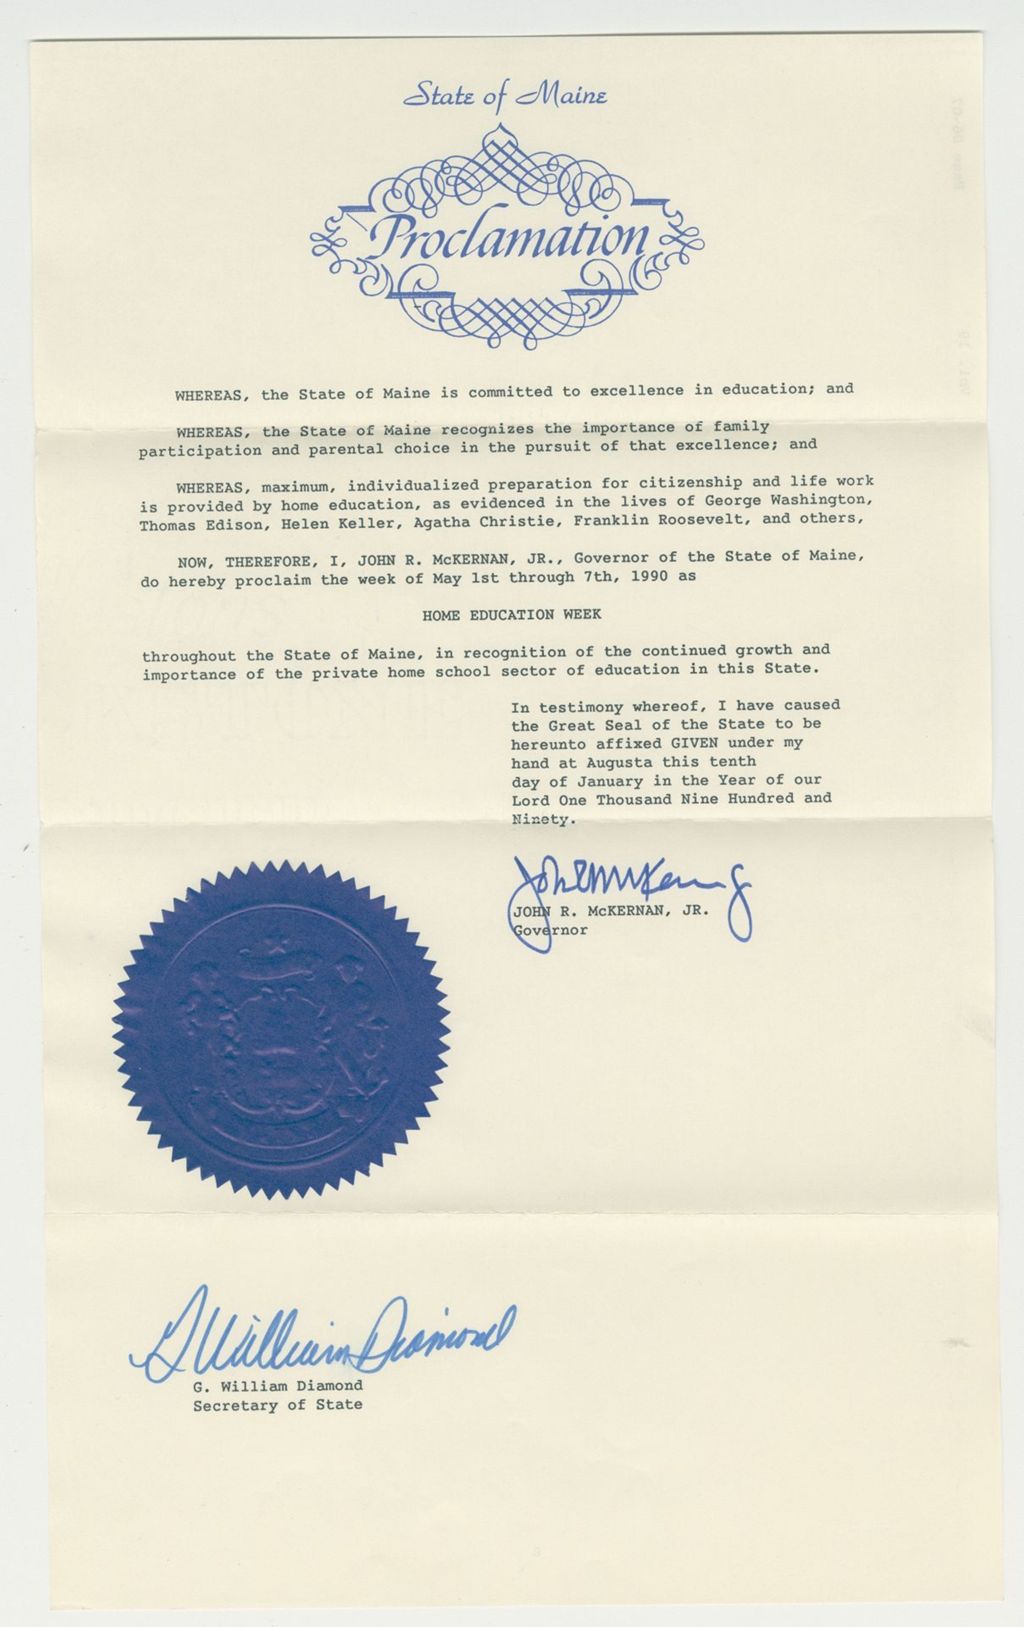 State of Maine
Proclamation
WHEREAS, the State of Maine is committed to excellence in education; and
WHEREAS, the State of Maine recognizes the importance of family
participation and parental choice in the pursuit of that excellence; and
WHEREAS, maximum, individualized preparation for citizenship and life work
is provided by home education, as evidenced in the lives of George Washington,
Thomas Edison, Helen Keller, Agatha Christie, Franklin Roosevelt, and others,
NOW, THEREFORE, I, JOHN R. McKERNAN, JR., Governor of the State of Maine,
do hereby proclaim the week of May 1st through 7th, 1990 as
HOME EDUCATION WEEK
throughout the State of Maine, in recognition of the continued growth and
importance of the private home school sector of education in this State.
In testimony whereof, I have caused
the Great Seal of the State to be
hereunto affixed GIVEN under my
hand at Augusta this tenth
day of January in the Year of our
Lord One Thousand Nine Hundred and
Ninety.
JOHN R. McKERNAN, JR.
Governor
G William Diamond
G. William Diamond
Secretary of State